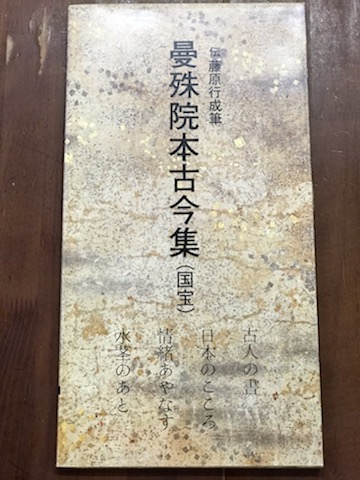 伝藤原行成筆
曼殊院本古今集(国宝)
古人の書
日本のこころ
情緒あやなす
水茎のあと